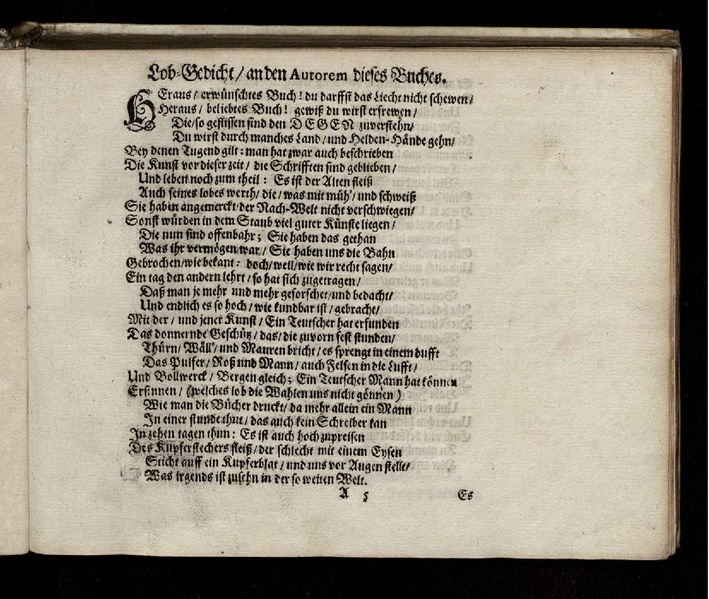 Lob-Gedicht / an den Autorem dieses Buches.
HEraus / erwünschtes Buch! du darffst das Liecht nicht schewen /
Heraus / beliebtes Buch! gewiß du wirst erfrewen /
Die / so geflissen sind den DEGEN zuverstehn /
Du wirst durch manches Land / und Helden-Hände gehn /
Bey denen Tugend gilt: man hat zwar auch beschrieben
Die Kunst vor dieser zeit / die Schrifften sind geblieben /
Und leben noch zum theil: Es ist der Alten fleiß
Auch seines lobes werth / die / was mit müh' / und schweiß
Sie haben angemerckt / der Nach-Welt nicht verschwiegen /
Sonst würden in dem Staub viel guter Künste liegen /
Die nun sind offenbahr; Sie haben das gethan
Was ihr vermögen war / Sie haben uns die Bahn
Gebrochen / wie bekant: doch / weil / wie wir recht sagen /
Ein tag den andern lehrt / so hat sich zugetragen /
Daß man je mehr und mehr geforschet / und bedacht /
Und endlich es so hoch / wie kundbar ist / gebracht /
Mit der / und jener Kunst / Ein Teutscher hat erfunden
Das donnernde Geschütz / das / die zuvorn fest stunden /
Thürn / Wäll' / und Mauren bricht / es sprengt in einem dufft
Das Pulfer / Roß und Mann / auch Felsen in die Lufft /
Und Bollwerck / Bergen gleich; Ein Teutscher Mann hat können
Ersinnen / (welches lob die Wahlen uns nicht gönnen)
Wie man die Bücher druckt / da mehr allein ein Mann
In einer stunde thut / das auch kein Schreiber kan
In zehen tagen thun: Es ist auch hoch zupreisen
Des Kupferstechers fleiß / der schlecht mit einem Eysen
Sticht auff ein Kupferblat / und uns vor Augen stelle /
Was irgends ist zusehn in der so weiten Welt.
A 5 Es